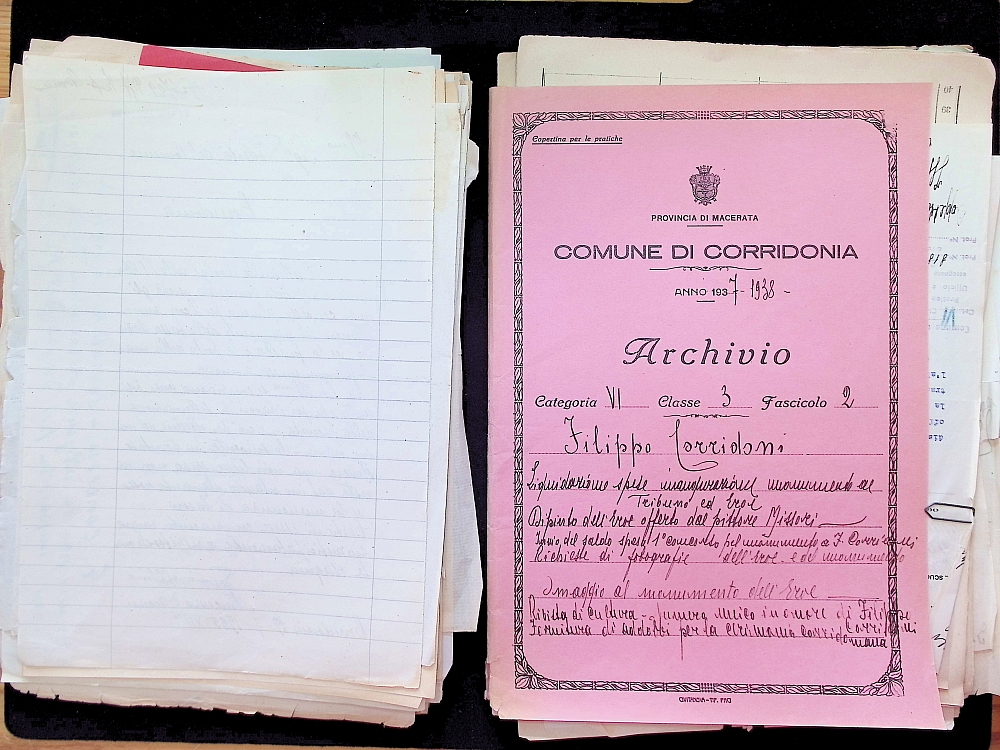 Copertina per le pratiche
PROVINCIA DI MACERATA
COMUNE DI CORRIDONIA
ANNO 1937-1938 -
Archivio
Categoria VI Classe 3 Fascicolo 2
Filippo Corridoni
Liquidazione spese inaugurazione monumento al
Tribuno ed Eroe
Dipinto dell'Eroe offerto dal pittore Missori
Invio del saldo spesa 1° concorso pel monumento a F. Corridoni
Richieste di fotografie dell'Eroe e del monumento
Omaggio al monumento dell'Eroe
Rivista di Cultura - numero unico in onore di Filippo
Corridoni
Fornitura di addobbi per la cerimonia corridoniana